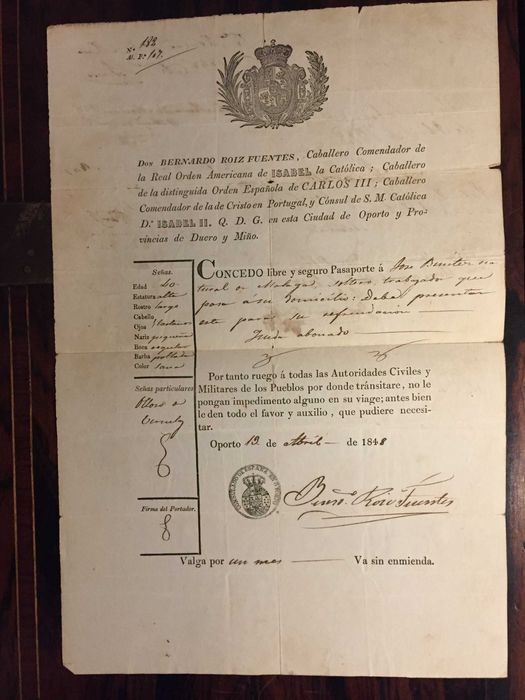 N.º 182
Al. F.º 107.
DON BERNARDO ROIZ FUENTES, Caballero Comendador de
la Real Orden Americana de ISABEL la Católica; Caballero
de la distinguida Orden Española de CARLOS III; Caballero
Comendador de la de Cristo en Portugal, y Cónsul de S. M. Católica
D.ª ISABEL II. Q. D. G. en esta Ciudad de Oporto y Pro-
vincias de Duero y Miño.
Señas.
Edad 40
Estatura alta
Rostro largo
Cabello
Ojos Castaños
Nariz pequeña
Boca regular
Barba poblada
Color sano
Señas particulares
Firma del Portador.
CONCEDO libre y seguro Pasaporte á Jose Benitez na
tural de Malaga, soltero trabajador que
pasa a su Domicilio: Debe presentar
este para su refrendacion
Queda abonado
Por tanto ruego á todas las Autoridades Civiles y
Militares de los Pueblos por donde tránsitare, no le
pongan impedimento alguno en su viage; antes bien
le den todo el favor y auxilio, que pudiere necesi-
tar.
Oporto 13 de Abril de 1848
CONSULADO DE ESPAÑA EN OPORTO
Bern.º Roiz Fuentes
Valga por un mes Va sin enmienda.